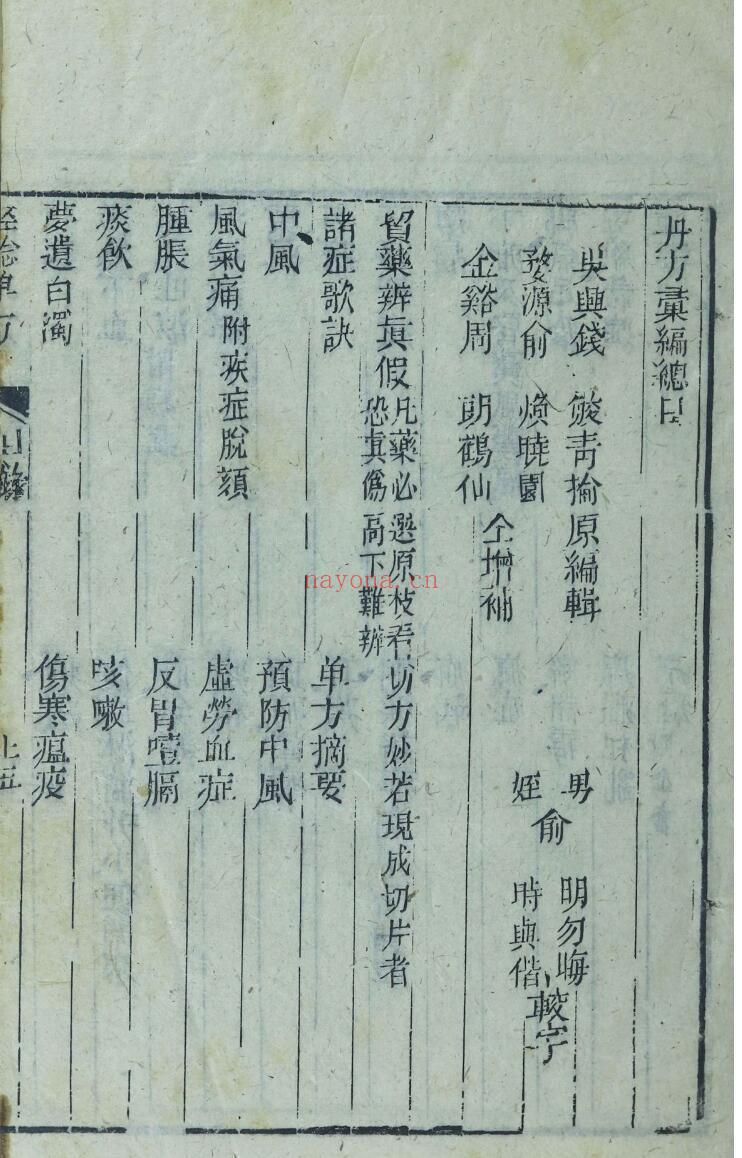 丹方彙編總目
吳興錢 峻青掄原編輯
婺源俞 煥曉園
金谿周 明鶴仙
仝增補
男 明勿晦
俞
姪 時與偕
較字
貿藥辨真假 凡藥必選原枝看切方妙若現成切片者
恐真僞高下難辨
諸症歌訣 单方摘要
中風 預防中風
風氣痛附疾症脫頦 虛勞血症
腫脹 反胃噎膈
痰飲 咳嗽
夢遺白濁 傷寒瘟疫
單方
目錄
上五
nayona.cn